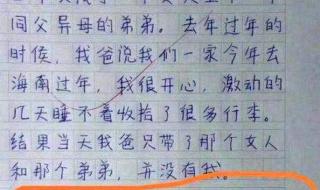 同父异母的弟弟。去年过年
的时候，我爸说我们一家今年去
海南过年，我很开心，激动的
几天睡不着收拾了很多行李。
结果当天我爸只带了那个女人
和那个弟弟，并没有我。